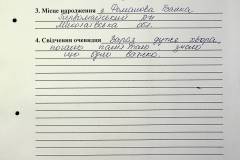 3. Місце народження с. Романова Балка
Первомайський р-н
Миколаївська обл.
4. Свідчення очевидця Зараз дуже хвора,
погано пам'ятаю знаю
що було важко.